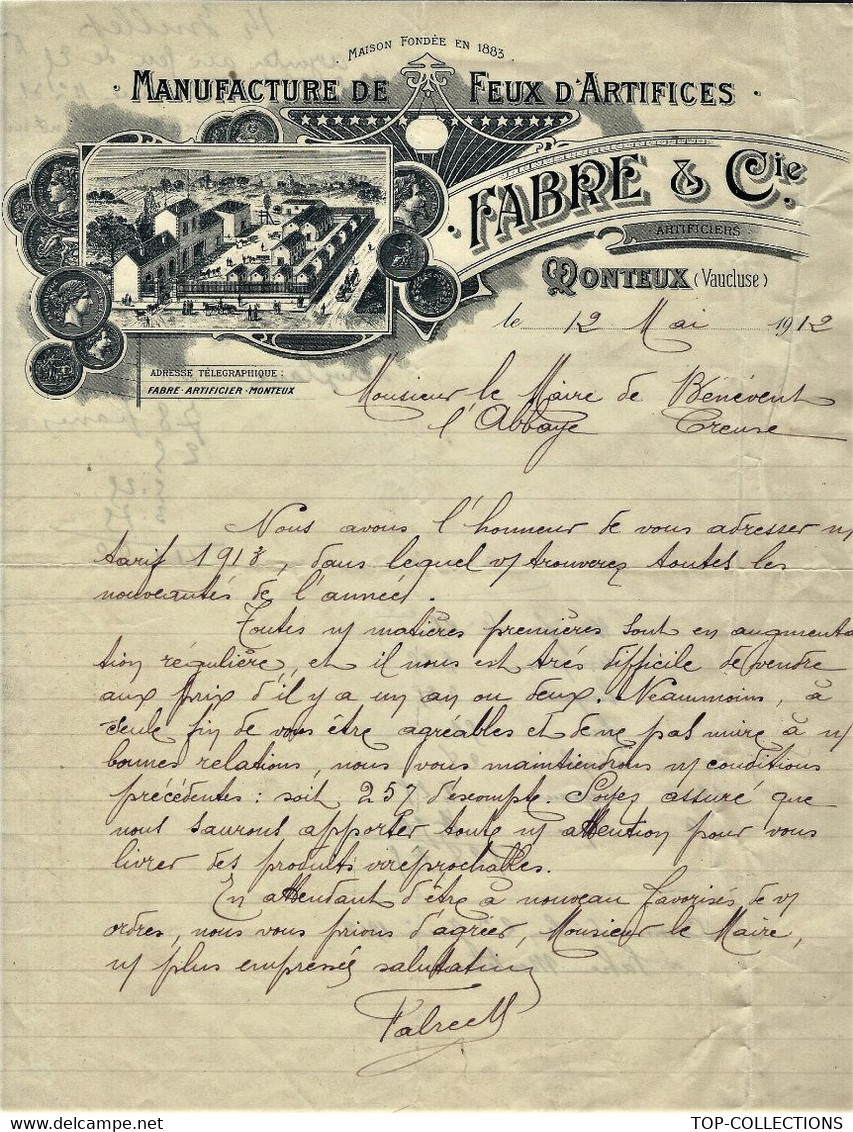 MAISON FONDÉE EN 1883
MANUFACTURE DE FEUX D'ARTIFICES
FABRE & Cie
ARTIFICIERS
MONTEUX (VAUCLUSE)
le 12 Mai 1912
ADRESSE TÉLÉGRAPHIQUE :
FABRE-ARTIFICIER-MONTEUX
Monsieur le Maire de Bénévent
l'Abbaye Creuse
Nous avons l'honneur de vous adresser n/
tarif 1913, dans lequel v/ trouverez toutes les
nouveautés de l'année.
Toutes n/ matières premières sont en augmenta
tion régulière, et il nous est très difficile de vendre
aux prix d'il y a un an ou deux. Néammoins, à
seule fin de vous être agréables et de ne pas nuire à n/
bonnes relations, nous vous maintiendrons n/ conditions
précédentes : soit 25% d'escompte. Soyez assuré que
nous saurons apporter toute n/ attention pour vous
livrer des produits irréprochables.
En attendant d'être à nouveau favorisés de v/
ordres, nous vous prions d'agréer, Monsieur le Maire,
n/ plus empressées salutations
Fabre
TOP-COLLECTIONS